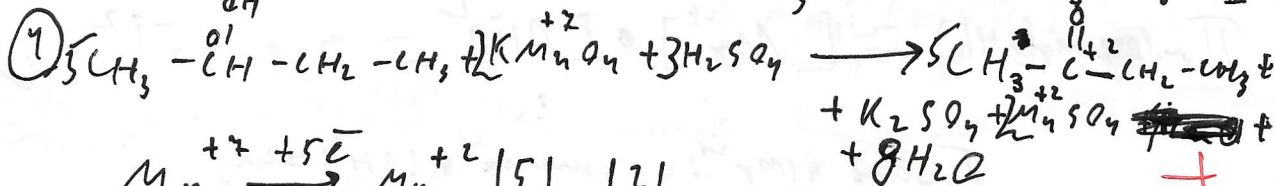 OH
④ 5CH₃ - CH - CH₂ - CH₃ + 2KMnO₄ + 3H₂SO₄ ⟶ 5CH₃ - C - CH₂ - CH₃ +
+ K₂SO₄ + 2MnSO₄ +
+ 8H₂O
Mn +7 +5e̅ ⟶ Mn +2 |5| |2|
+